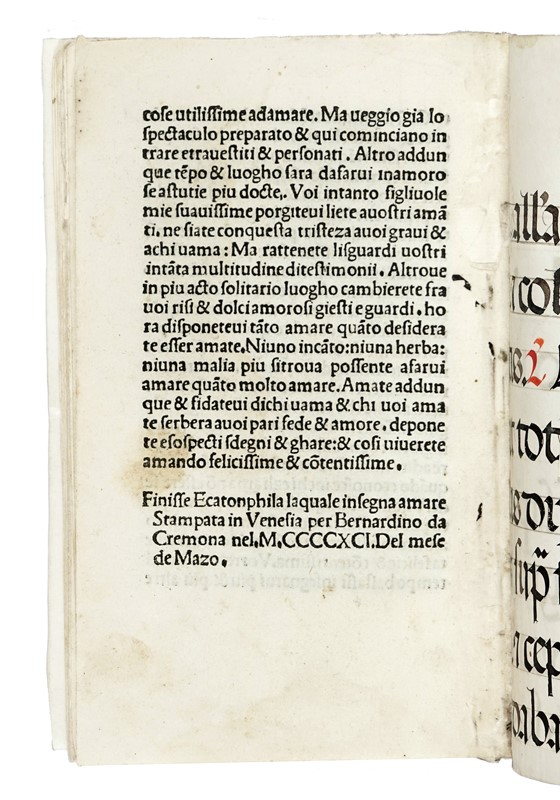 cose utilissime adamare. Ma ueggio gia lo
spectaculo preparato & qui cominciano in
trare etrauestiti & personati. Altro addun
que tẽpo & luogho sara dasarui inamoro
se astutie piu docte,. Voi intanto figliuole
mie suauissime porgiteui liete auostri amã
ti. ne siate conquesta tristeza auoi graui &
achi uama: Ma rattenete lisguardi uostri
intãta multitudine ditestimonii. Altroue
in piu acto solitario luogho cambierete fra
uoi risi & dolci amorosi giesti e guardi. ho
ra disponeteui tãto amare quãto desidera
te esser amate. Niuno incãto: niuna herba:
niuna malia piu sitroua possente afarui
amare quãto molto amare. Amate addun
que & fidateui dichi uama & chi uoi ama
te serbera auoi pari fede & amore. depone
te esospecti sdegni & ghare: & cosi uiuerete
amando felicissime & cõtentissime.
Finisse Ecatonphila laquale insegna amare
Stampata in Venesia per Bernardino da
Cremona nel. M.CCCCXCI. Del mese
de Mazo.
all'a
col
us. L
tot
us or
surp̃
cep
daba